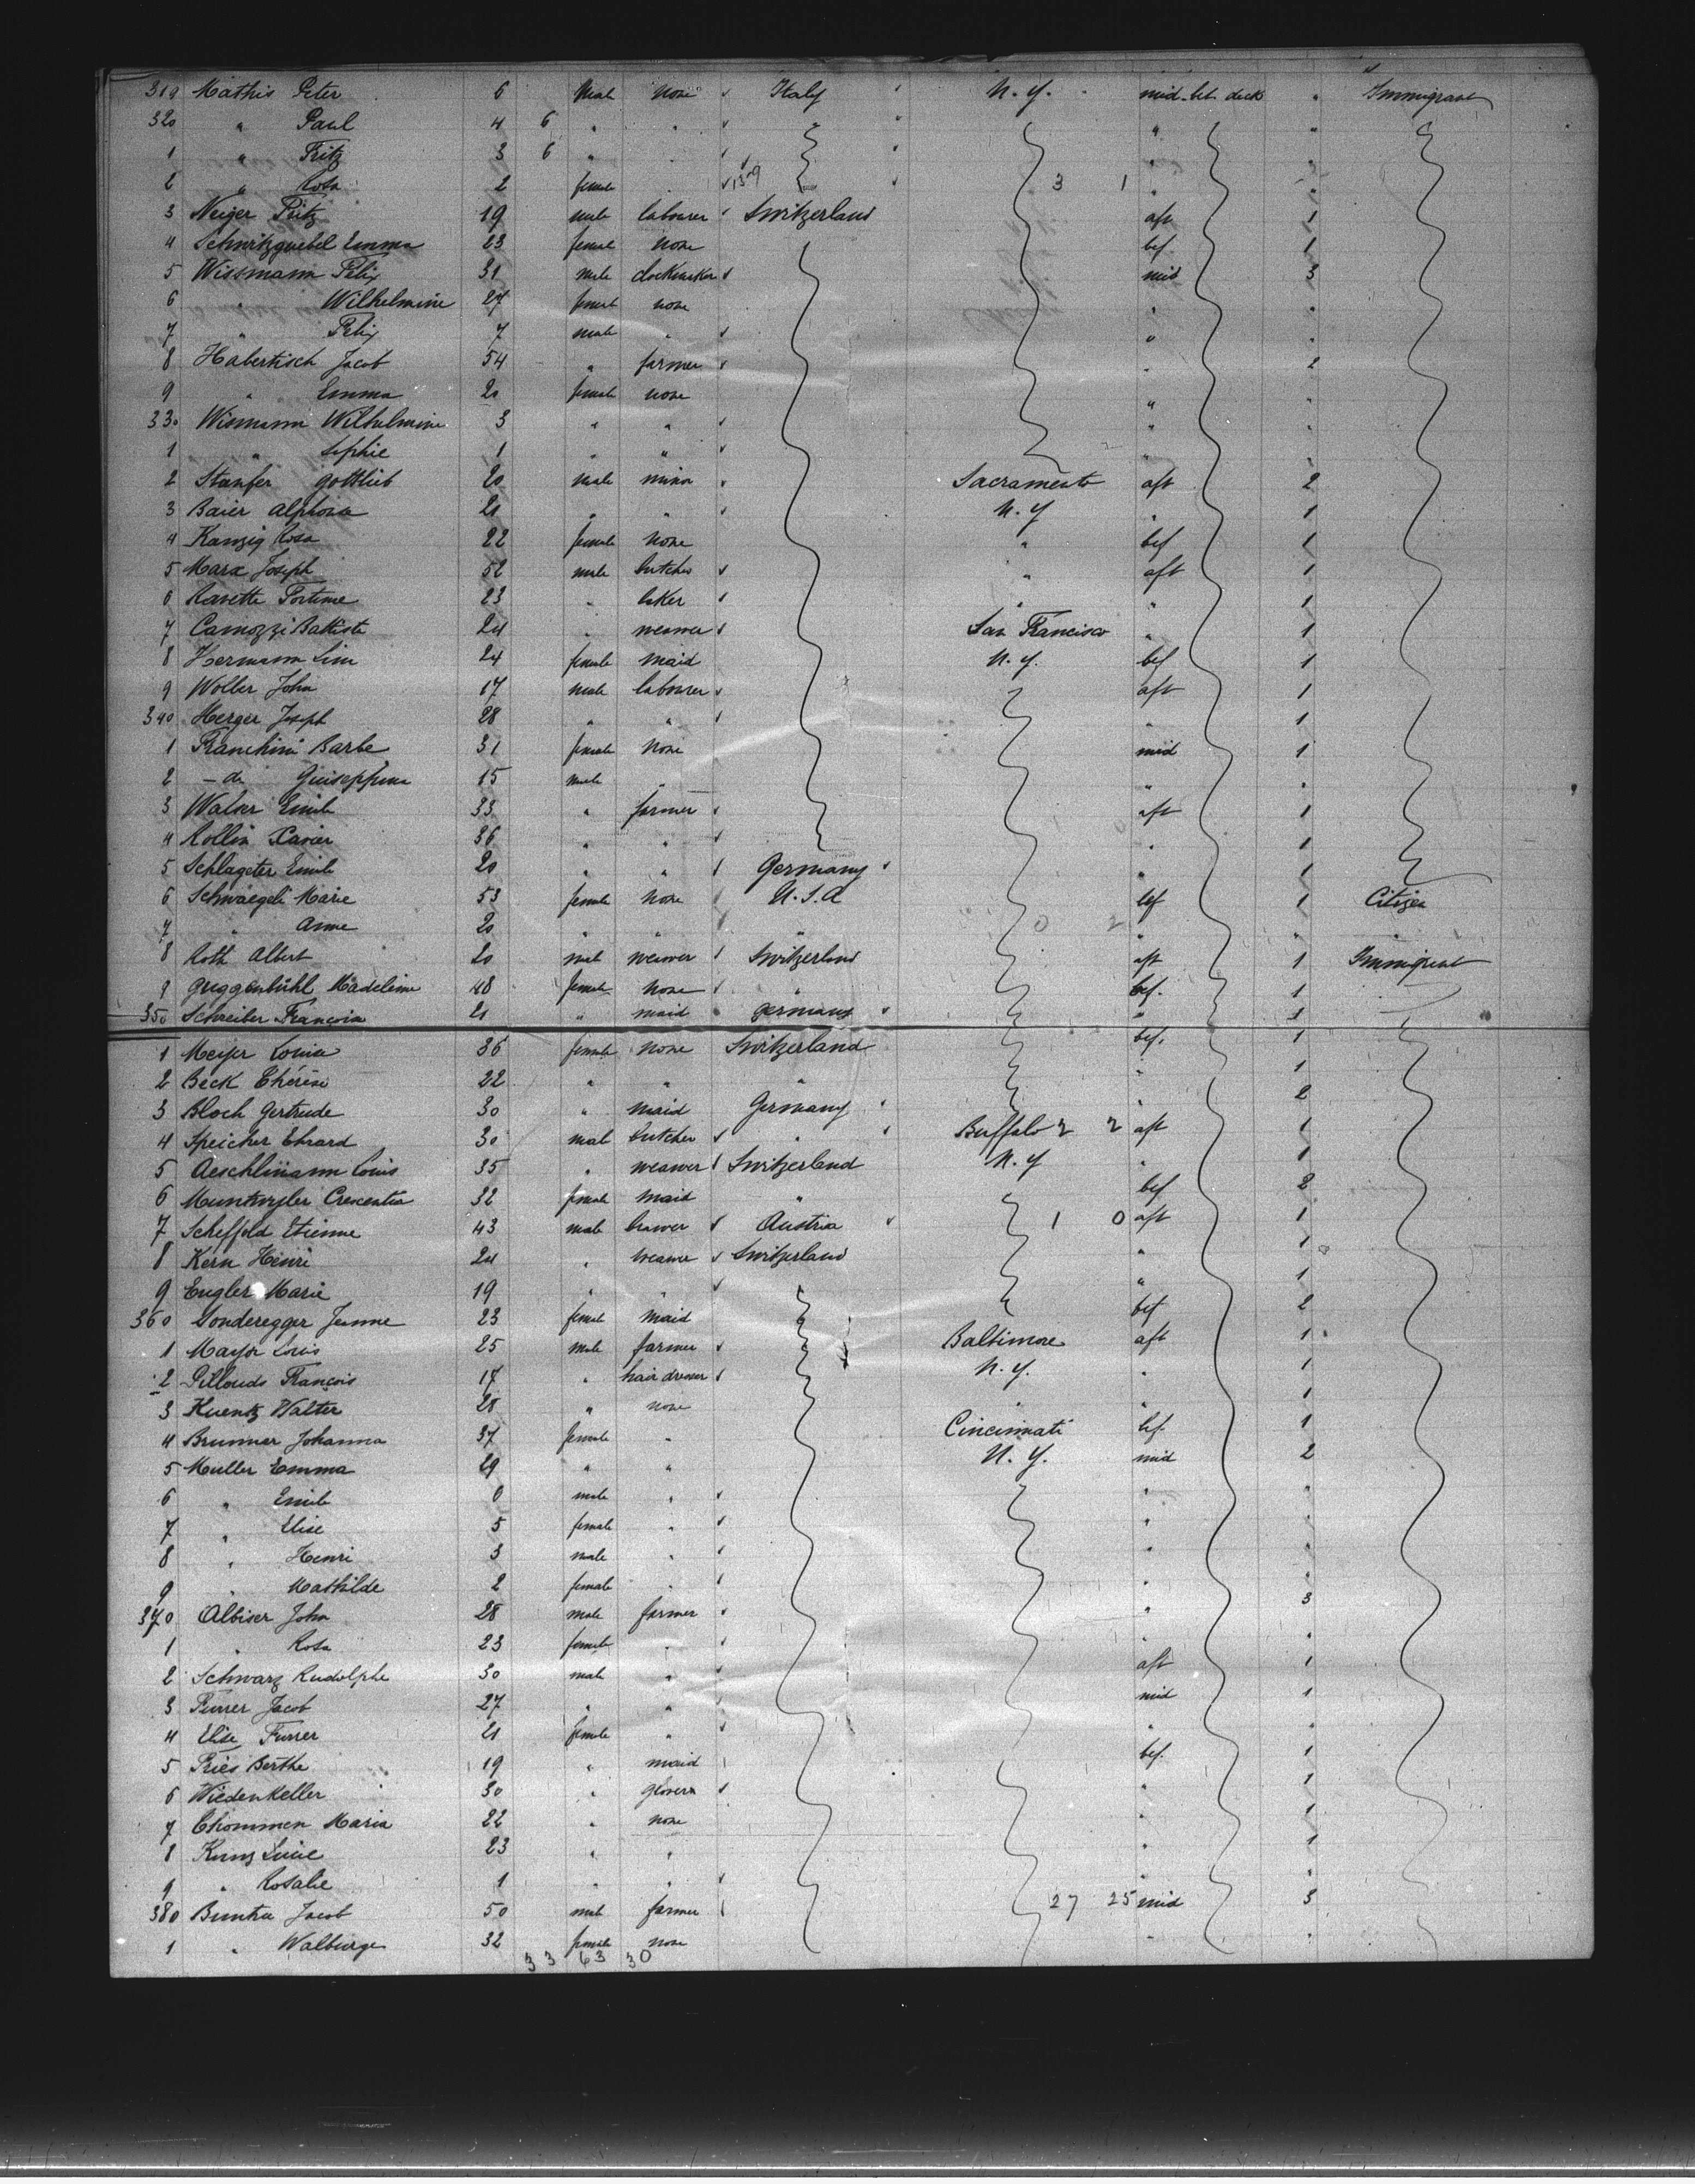 319 Mathis Peter 6 Male none Italy N.Y. mid bet deck " Immigrant
320 " Paul 4 6 " " " " "
1 " Fritz 3 6 " " "
2 " Rosa 2 female " 3 1 " "
3 Neiger Fritz 19 male labourer Switzerland aft 1
4 Schwitzguebel Emma 23 female none bef 1
5 Wissmann Felix 31 male clockmaker mid 3
6 " Wilhelmine 27 female none " "
7 " Felix 7 male " " "
8 Habertisch Jacob 54 " farmer " 2
9 " Emma 20 female none " "
330 Wismann Wilhelmine 3 " " " "
1 " Sophie 1 " " " "
2 Staufer Gottlieb 20 male minor Sacramento aft 2
3 Baier Alphonse 21 " " N.Y " 1
4 Kanzig Rosa 22 female none " bef 1
5 Marx Joseph 52 male butcher " aft 1
6 Ravette Fortune 23 " baker " " 1
7 Camozzi Battista 24 " weawer San Francisco " 1
8 Hermann Line 24 female maid N.Y. bef 1
9 Woller John 17 male labourer aft 1
340 Herger Joseph 28 " " " 1
1 Franchini Barbe 31 female none mid 1
2 - do Guiseppina 15 male " " "
3 Walser Emile 33 " farmer aft 1
4 Rollin Xavier 36 " " " 1
5 Schlageter Emile 20 " " Germany " 1
6 Schwaegeli Marie 53 female none U.S.A bef 1 Citizen
7 " Anne 20 " " " 0 2 " " "
8 Roth Albert 20 male weawer Switzerland aft 1 Immigrant
9 Guggenbühl Madeleine 48 female none " bef. 1
350 Schreiber Francoise 21 " maid Germany " 1
1 Meyer Louise 36 female none Switzerland bef. 1
2 Beck Thérèse 22 " " " " 1
3 Bloch Gertrude 30 " maid Germany " 2
4 Speicher Ehrard 30 male butcher " Buffalo 2 2 aft 1
5 Aeschlimann Louis 35 " weawer Switzerland N.Y " 1
6 Muntwyler Crescentia 32 female maid " bef 2
7 Scheffold Etienne 43 male brawer Austria 1 0 aft 1
8 Kern Henri 24 " weawer Switzerland " 1
9 Engler Marie 19 " " " 1
360 Sonderegger Jeanne 23 female maid bef 2
1 Mayor Louis 25 male farmer Baltimore aft 1
2 Pillouds François 17 " hair dresser N.Y. " 1
3 Kuentz Walter 28 " none " " 1
4 Brunner Johanna 37 female " Cincinnati bef. 1
5 Muller Emma 29 " " N.Y. mid 2
6 " Emile 0 male " " "
7 " Elise 5 female " " "
8 " Henri 3 male " " "
9 " Mathilde 2 female " " "
370 Albiser John 28 male farmer " 3
1 " Rosa 23 female " " "
2 Schwarz Rudolphe 30 male " aft 1
3 Furrer Jacob 27 " " mid 1
4 Elise Furrer 21 female " " "
5 Fries Berthe 19 " maid bef. 1
6 Wiedenkeller 30 " " 1
7 Thommen Maria 22 " none " 1
8 Kunz Lucie 23 " " " 1
9 " Rosalie 1 " " " "
380 Buntzu Jacob 50 male farmer 27 25 mid 3
1 " Walburge 32 female none " "
33 63 30